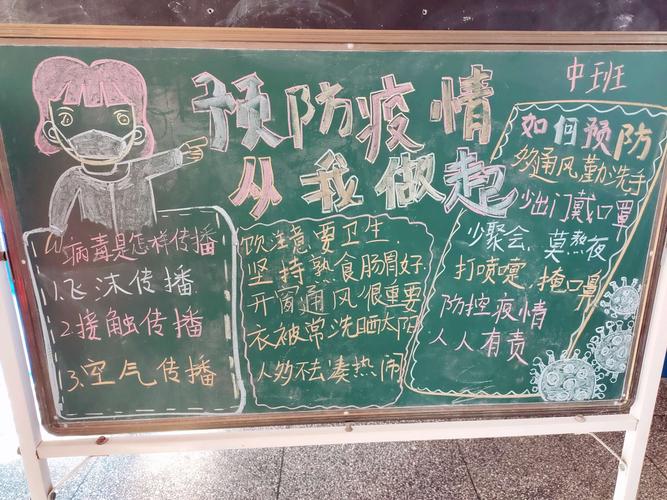 中班
预防疫情
从我做起
病毒是怎样传播
1.飞沫传播
2.接触传播
3.空气传播
饮注意要卫生.
坚持熟食肠胃好.
开窗通风很重要
衣被常洗晒太阳
人多不去凑热闹
如何预防
多通风勤洗手
少出门戴口罩
少聚会, 莫熬夜
打喷嚏, 掩口鼻
防控疫情
人人有责